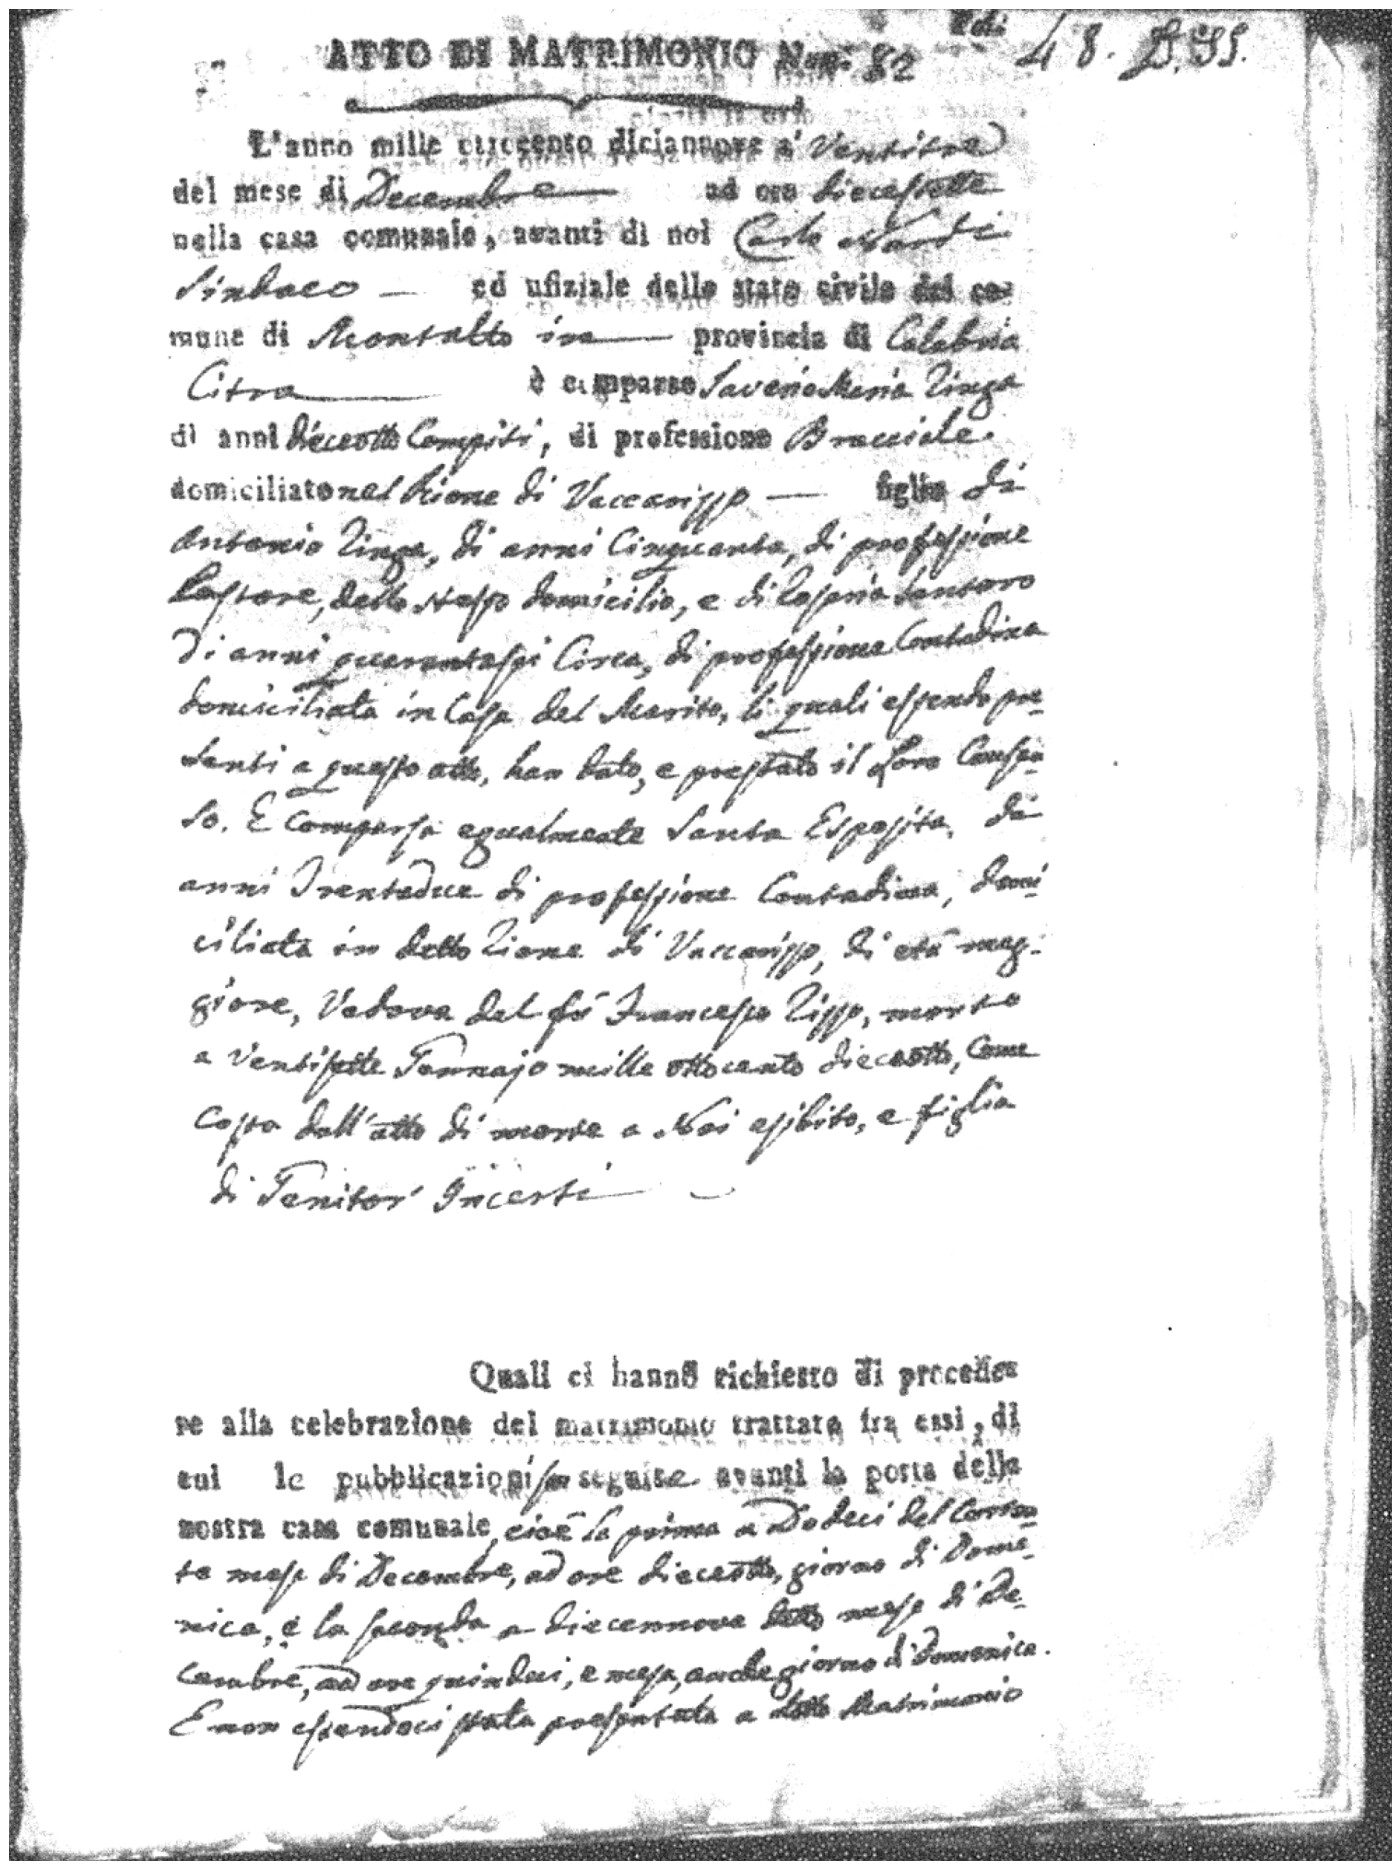 Fol: 48. D.SS.
ATTO DI MATRIMONIO Num. 82
L'anno mille ottocento diciannove a' Ventitre
del mese di Decembre ad ore diecessette
nella casa comunale, avanti di noi Carlo Nardi
Sindaco ed ufiziale dello stato civile del co-
mune di Montalto in provincia di Calabria
Citra è comparso Saverio Maria Zinga
di anni dieceotto Compiti, di professione Bracciale
domiciliato nel Rione di Vaccarizzo figlio di
Antonio Zinga, di anni Cinquanta, di professione
Pastore, dello stesso domicilio, e di Santoro
di anni quarantasei Circa, di professione Contadina
domiciliata in Casa del Marito, li quali essendo pre-
senti a questo atto, han dato, e prestato il Loro Consen-
so. E Comparsa egualmente Santa Esposita, di
anni Trentadue di professione Contadina, domi-
ciliata in detto Rione di Vaccarizzo, di età mag-
giore, Vedova del fù Francesco Rizzo, morto
a Ventisette Gennajo mille ottocento dieceotto, Come
Costa dall'atto di morte a Noi esibito, e figlia
di Genitori Incerti
Quali ci hanno richiesto di procede-
re alla celebrazione del matrimonio trattato fra essi, di
cui le pubblicazioni son seguite avanti la porta della
nostra casa comunale, cioè la prima a Dodeci del Corren-
te mese di Decembre, ad ore dieceotto, giorno di Dome-
nica, e la seconda a diecennove detto mese di De-
cembre, ad ore quindeci, e mesa, anche giorno di Domenica.
E non essendoci stata presentata a detto Matrimonio